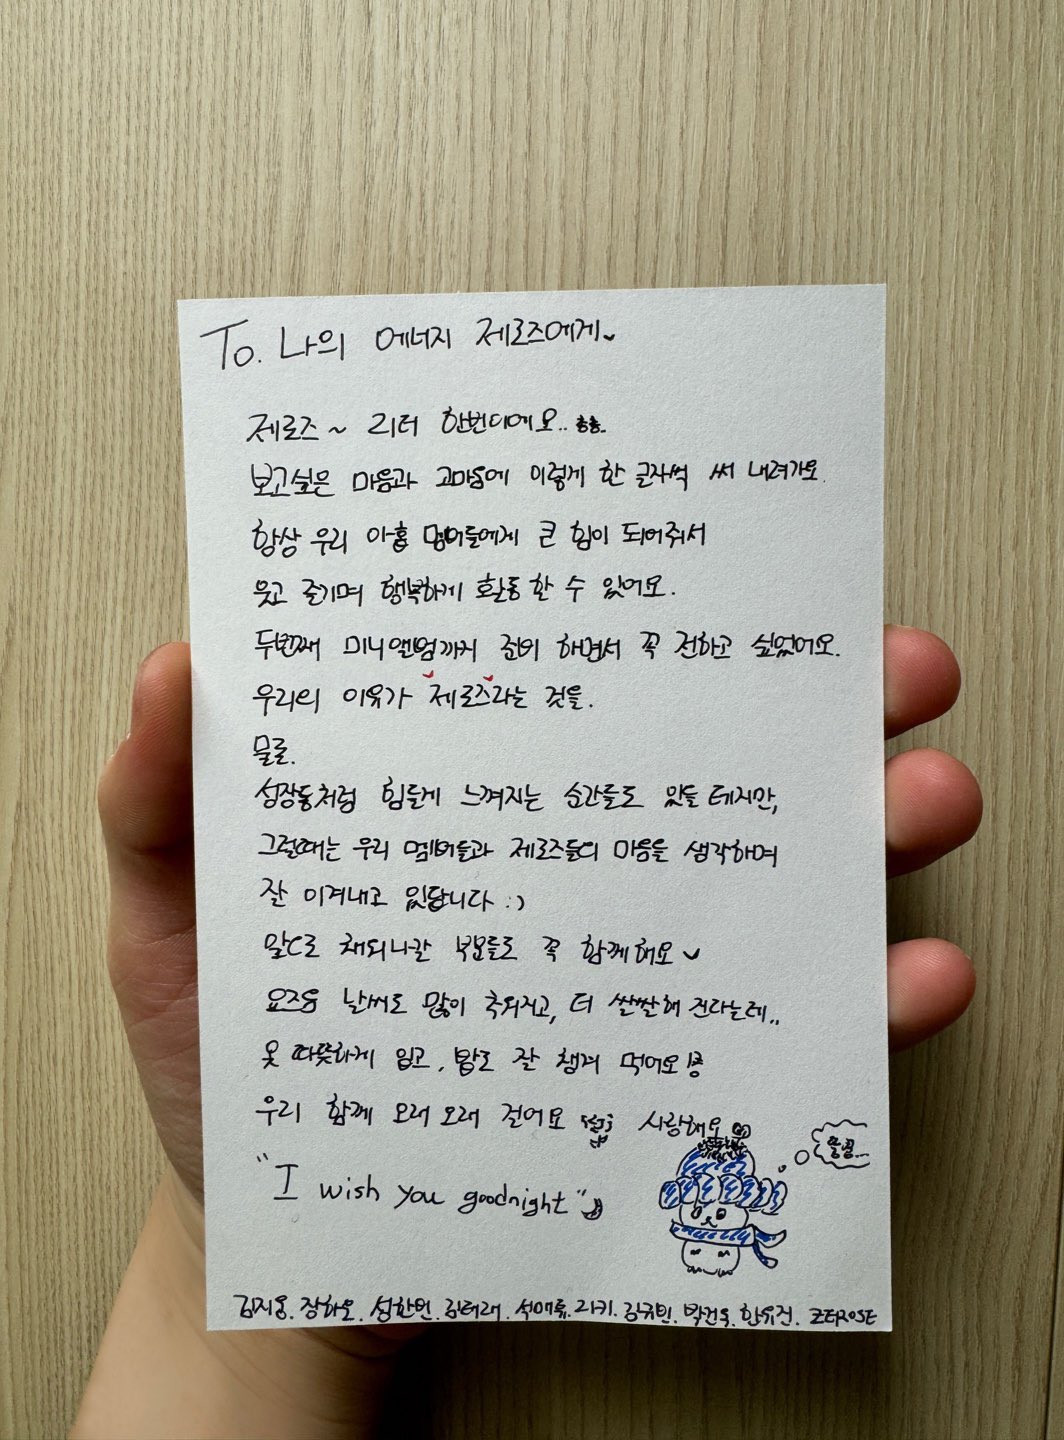 To. 나의 에너지 제로즈에게
제로즈~ 리더 한빈이에요.. ㅎㅎ.
보고싶은 마음과 고마움에 이렇게 한 글자씩 써 내려가요.
항상 우리 아홉 멤버들에게 큰 힘이 되어줘서
웃고 즐기며 행복하게 활동 할 수 있어요.
두번째 미니앨범까지 준비 하면서 꼭 전하고 싶었어요.
우리의 이유가 제로즈라는 것을.
물론.
성장통처럼 힘들게 느껴지는 순간들도 있을 테지만,
그럴때는 우리 멤버들과 제로즈들의 마음을 생각하며
잘 이겨내고 있답니다 :)
앞으로 채워나갈 부분들도 꼭 함께해요
요즘 날씨도 많이 추워지고, 더 쌀쌀해 진다는데..
옷 따뜻하게 입고, 밥도 잘 챙겨 먹어요!
우리 함께 오래 오래 걸어요 사랑해요
"I wish you goodnight"
김지웅. 장하오. 성한빈. 김태래. 석매튜. 리키. 김규빈. 박건욱. 한유진. ZEROSE